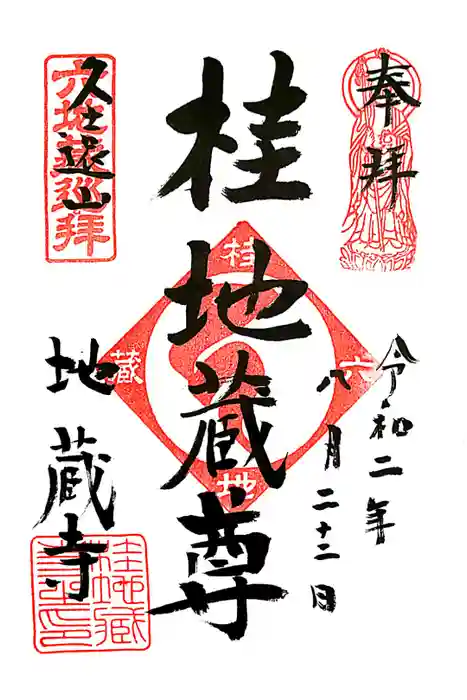 奉拝
令和二年
八月二十二日
桂地蔵尊
桂
六
地
蔵
久遠山
地蔵寺
六地蔵巡拝